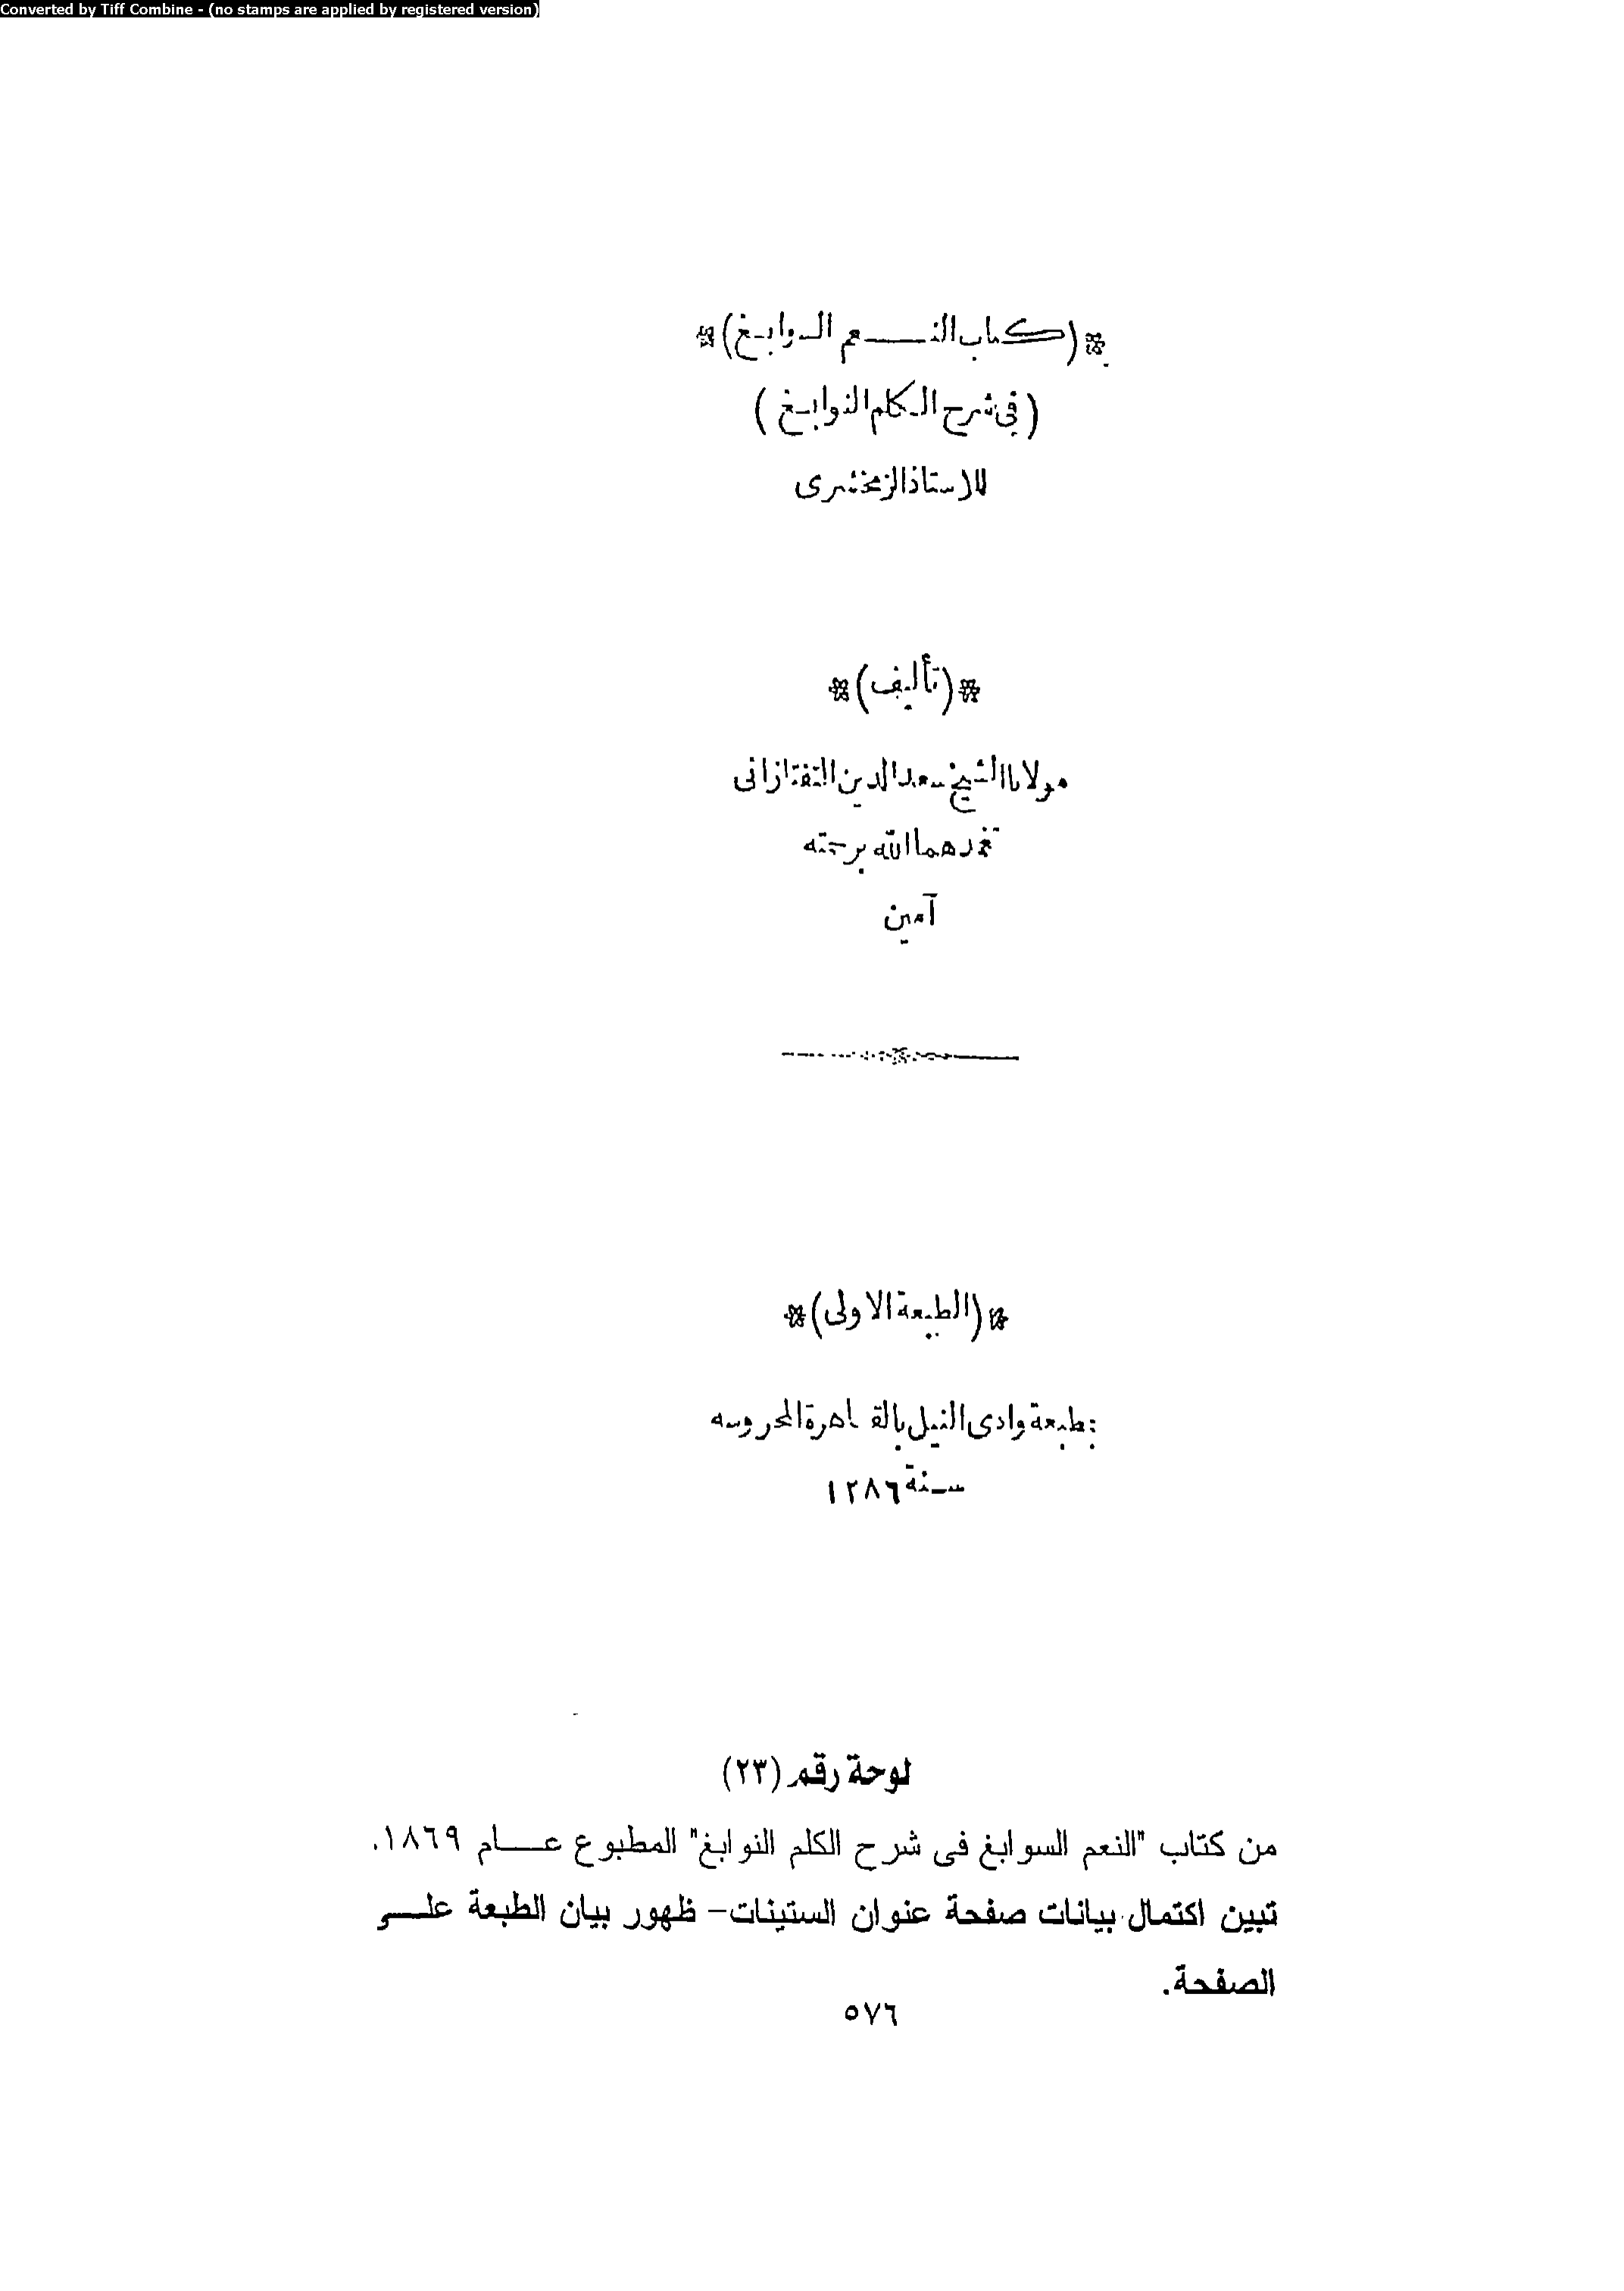 Converted by Tiff Combine - (no stamps are applied by registered version)
*(كتاب النعم السوابغ)*
(في شرح الكلم النوابغ)
للاستاذ الزمخشرى
*(تأليف)*
مولانا الشيخ سعد الدين التفتازانى
تغمدهما الله برحمته
آمين
*(الطبعة الاولى)*
بمطبعة وادى النيل بالقاهرة المحروسه
سنة ١٢٨٦
لوحة رقم (٢٣)
من كتاب "النعم السوابغ فى شرح الكلم النوابغ" المطبوع عام ١٨٦٩.
تبين اكتمال بيانات صفحة عنوان الستينات- ظهور بيان الطبعة على
الصفحة.
٥٧٦